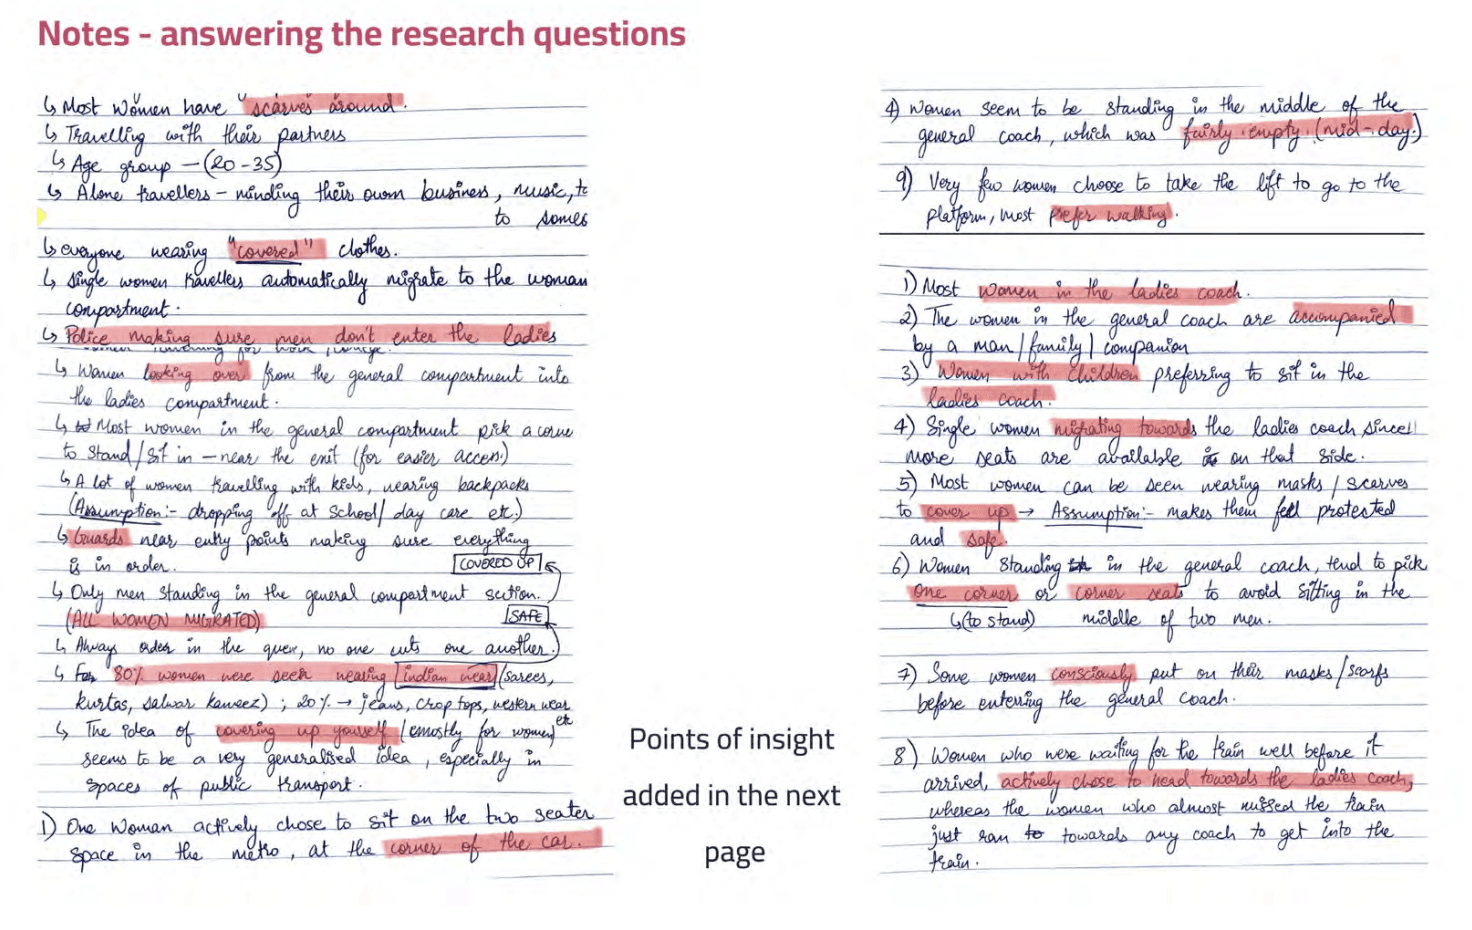 Notes - answering the research questions
↳ Most women have "scarves" around.
↳ Travelling with their partners
↳ Age group – (20-35)
↳ Alone travellers – minding their own business, music,
to
↳ everyone wearing "covered" clothes.
↳ Single women travellers automatically migrate to the woman
compartment.
↳ Police making sure men don't enter the ladies
↳ Women looking over from the general compartment into
the ladies compartment.
↳ Most women in the general compartment pick a corne
to stand/sit in – near the exit (for easier access)
↳ A lot of women travelling with kids, wearing backpacks
(Assumption:- dropping off at school/day care etc.)
↳ Guards near entry points making sure everything
is in order.
COVERED UP
↳ Only men standing in the general compartment section.
(ALL WOMEN MIGRATED)
SAFE
↳ Always order in the queue, no one cuts one another.
↳ 80% women were seen wearing Indian wear (sarees,
kurtas, salwar kameez) ; 20% → jeans, crop tops, western wear
etc
↳ The idea of covering up yourself (mostly for women)
seems to be a very generalised idea, especially in
spaces of public transport.
1) One woman actively chose to sit on the two seater
space in the metro, at the corner of the car.
Points of insight
added in the next
page
4) Women seem to be standing in the middle of the
general coach, which was fairly empty. (mid-day)
9) Very few women choose to take the lift to go to the
platform, most prefer walking.
1) Most women in the ladies coach.
2) The women in the general coach are accompanied
by a man/family/companion
3) Women with children preferring to sit in the
ladies coach.
4) Single women migrating towards the ladies coach since
more seats are available on that side.
5) Most women can be seen wearing masks/scarves
to cover up → Assumption:- makes them feel protected
and safe.
6) Women standing in the general coach, tend to pick
one corner or corner seats to avoid sitting in the
↳(to stand) middle of two men.
7) Some women consciously put on their masks/scarfs
before entering the general coach.
8) Women who were waiting for the train well before it
arrived, actively chose to head towards the ladies coach,
whereas the women who almost missed the train
just ran towards any coach to get into the
train.